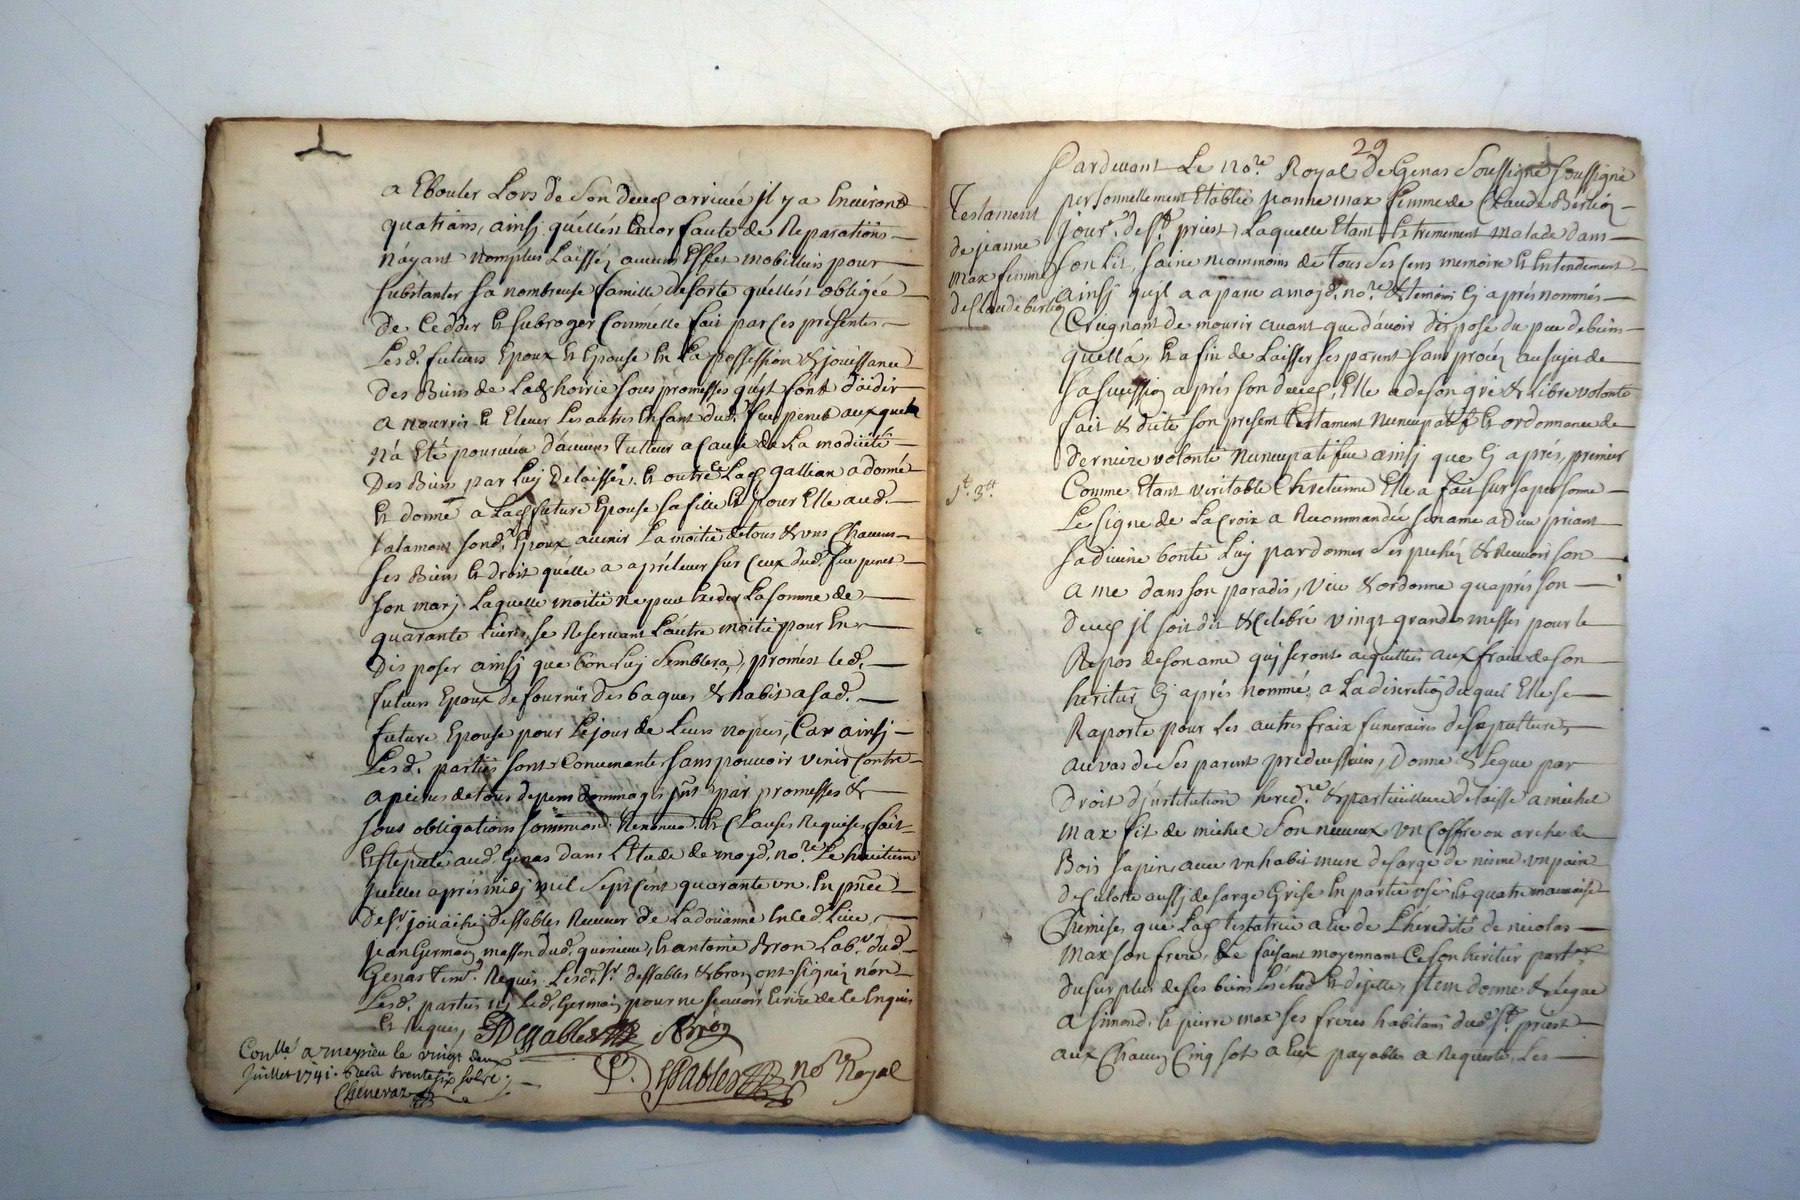 a Ebouler Lors de son deces arrivée il y a Environ
quatrans, ainsi quellest Encor faute de Reparations
nayant nomplus Laissés aucuns Effet mobilliers pour
substanter sa nombreuse famille desorte quellest obligée
De Cedder et subroger Commelle fait par ces presentes
Lesd. futurs Epoux et Epouse En La possession & jouissance
Des Biens de Lad. hoirie sous promesses quist font d'aider
a nourrir et Elever Les autres Enfant dud. feu penet auxquels
na Eté pourvüe d'aucuns tutteur a Cause de La modicité
Des Biens par Luy delaissés, et outre ce Lad. gallian a donné
et donne a Lad. future Epouse sa fille et pour Elle aud.
Jalamont sond. Epoux avenir La moitié de tous & uns Chacuns
ses Biens et droit quelle a apréleuer sur Ceux dud. feu penet
son mary Laquelle moitié ne peut Exeder La somme de
quarante Livres, se Reservant Lautre moitié pour En
Disposer ainsi que bon Luy semblera, promest led.
futurs Epoux de fournir des bagues & habit a sad.
future Epouse pour Lejour de Leurs nopces, Car ainsi
Lesd. parties sont Convenante sans pouvoir venir Contre
apeines de tous depens dommages par promesses &
sous obligations Renonca. et Clauses Requises, fait
et stipulé aud. Genas dans L'Etude de moyd. no.re Le huitieme
Juillet après midj mil sept cent quarante un. En pnce
de sr. joüaihy dessables Receveur de La doüanne En ced. Lieu
Jean Germain masson dud. et antoine Bron Lab.r dud.
Genas tem. Requis. Lesd. sr. dessables & bron ont signéz non
Lesd. parties nj led. Germain pour ne sçavoir Ecrire de ce Enquis
et Requis,
Dessables Bron
Conllé a meyzieu le vingt deux
Juillet 1741. Receu trente six sols
Cheneraz
P. Dessables no.re Royal
29
Pardevant Le no.re Royal de Genas Soussigné soussigné
Testament
de jeanne
max femme
de Claude berlioz
personnellement Etablie jeanne max femme de Claude Berlioz
jour. de st. priest, Laquelle Etant Extremement malade dans
son Lit, saine neanmoins de tous ses sens memoire et Entendement
ainsi quil a aparu a moyd. no.re & temoins Cj après nommés
Creignant de mourir avant que d'avoir disposé du peu de biens
quella, et afin de Laisser ses parent sans procés au sujet de
sa succession après son deces, Elle a de son gré & Libre volonté
fait & dicté son present testament nuncupatif et ordonnance de
derniere volonté nuncupatifue ainsi que Cj après, premier
Comme Etant veritable Chretienne Elle a fait sur sa personne
Le signe de La Croix a Recommandée son ame a Dieu priant
sa divine bonté Luy pardonner ses pechés & Recevoir son
ame dans son paradis, veut & ordonne quaprés son
deces jl soit dit & Celebré vingt grandes messes pour le
Repos de son ame qui seront aquittées aux fraix de son
heritier Cj après nommé, a La discretion duquel Elle se
Raporte pour Les autres fraix funeraires de sepulture,
au vas de ses parent predecessairs, Donne & Legue par
droit djnstitution hered.re & particulliere delaisse a michel
max fils de michel son neveux un Coffre ou arche de
Bois sapin, avec un habit muse de sarge de nisme, un pair
de Culotte aussj de sarge Grise En partie usé, et quatre mauvaise
Chemises que Lad. testatrice a Eu de L'heredité de nicolas
max son frere, Le faisant moyennant Ce son heritier part.er
du surplus de ses biens Lexclud et dejette, Item donne & Legue
a simond, et pierre max ses freres habitans dud. st. priest
aux Chacun Cinq sol a Eux payables a Requeste, Les